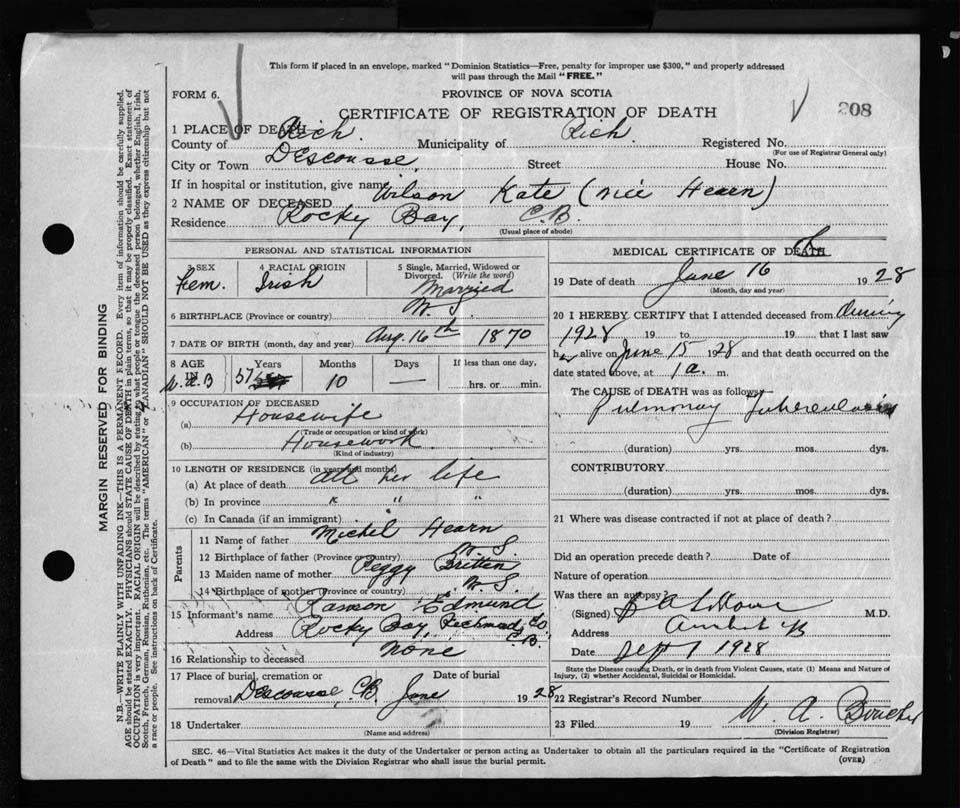 This form if placed in an envelope, marked "Dominion Statistics—Free, penalty for improper use $300," and properly addressed
will pass through the Mail "FREE."
FORM 6.
PROVINCE OF NOVA SCOTIA
CERTIFICATE OF REGISTRATION OF DEATH
208
1 PLACE OF DEATH
County of Rich. Municipality of Rich. Registered No.
(For use of Registrar General only)
City or Town Descousse, Street House No.
If in hospital or institution, give name
2 NAME OF DECEASED Wilson Kate (nice Hearn)
Residence Rocky Bay, C.B.
(Usual place of abode)
PERSONAL AND STATISTICAL INFORMATION
3 SEX 4 RACIAL ORIGIN 5 Single, Married, Widowed or Divorced. (Write the word)
Fem. Irish Married
6 BIRTHPLACE (Province or country) N.S.
7 DATE OF BIRTH (month, day and year) Aug. 16th 1870
8 AGE IN Years Months Days If less than one day,
57 10 — hrs. or min.
W.A.B
9 OCCUPATION OF DECEASED
(a) Housewife
(Trade or occupation or kind of work)
(b) Housework
(Kind of industry)
10 LENGTH OF RESIDENCE (in years and months)
(a) At place of death all her life
(b) In province " " "
(c) In Canada (if an immigrant)
Parents
11 Name of father Michel Hearn
12 Birthplace of father (Province or country) N.S.
13 Maiden name of mother Peggy Britten
14 Birthplace of mother (Province or country) N.S.
15 Informant's name Ramon Edmund
Address Rocky Bay, Richmond Co C.B.
16 Relationship to deceased None
17 Place of burial, cremation or removal Date of burial
Descousse, C.B. June 1928
18 Undertaker
(Name and address)
MEDICAL CERTIFICATE OF DEATH
19 Date of death June 16 1928
(Month, day and year)
20 I HEREBY CERTIFY that I attended deceased from During
1928 19 to 19 that I last saw
her alive on June 15 1928 and that death occurred on the
date stated above, at 1 a. m.
The CAUSE of DEATH was as follows:
Pulmonary Tuberculosis
(duration) yrs. mos. dys.
CONTRIBUTORY
(duration) yrs. mos. dys.
21 Where was disease contracted if not at place of death?
Did an operation precede death? Date of
Nature of operation
Was there an autopsy?
(Signed) M.D.
Address
Date Sept 1 1928
State the Disease causing Death, or in death from Violent Causes, state (1) Means and Nature of
Injury, (2) whether Accidental, Suicidal or Homicidal.
22 Registrar's Record Number
23 Filed 19 W. A. Boucher
(Division Registrar)
SEC. 46—Vital Statistics Act makes it the duty of the Undertaker or person acting as Undertaker to obtain all the particulars required in the "Certificate of Registration
of Death" and to file the same with the Division Registrar who shall issue the burial permit.
(OVER)
MARGIN RESERVED FOR BINDING
N.B.—WRITE PLAINLY WITH UNFADING INK—THIS IS A PERMANENT RECORD. Every item of information should be carefully supplied.
AGE should be stated EXACTLY. PHYSICIANS should STATE CAUSE OF DEATH in plain terms, so that it may be properly classified. Exact statement of
OCCUPATION is very important. RACIAL ORIGIN will be described by stating to what people or tongue the deceased person belonged, whether English, Irish,
Scotch, French, German, Russian, Ruthenian, etc. The terms "AMERICAN" or "CANADIAN" SHOULD NOT BE USED as they express citizenship but not
a race or people. See instructions on back of Certificate.